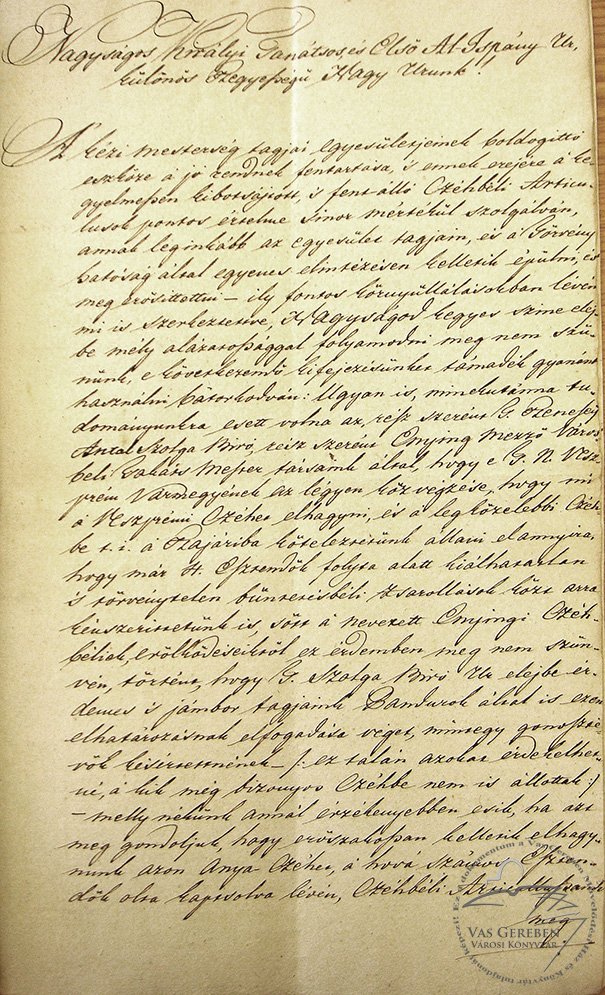 Nagyságos Királyi Tanátsos és Első Al-Ispány Ur,
különös Kegyességű Nagy Urunk!
A kézi mesterség tagjai egyesületjeinek boldogittó
eszköze a jó rendnek fentartása, is ennek erejére a ke-
gyelmessen kibotsájtott, is fent álló Czéhbéli Articu-
lusok pontos értelme Sinor mértékűl szolgálván,
annak leginkább az egyesület tagjain, és a Törvény
hatóság által egyenes elintézésen kelletik épülni, és
meg erősittettni – ily fontos környűlállásokban lévén
mi is szerkeztetve, Nagyságod kegyes szine elej-
be mély alázatossággal folyamodni meg nem szü-
nünk, e következendő kifejezésünket támadék gyanánt
használni bátorkodván: Ugyan is, minekutánna tu-
domanyunkra esett volna az, rész szerént G.
Antal Szolga Biró, rész szerént Enying Mező Város
béli Takáts Mester társaink által, hogy e T. N. Vesz-
prém Vármegyének az légyen köz végzése, hogy mi
a Veszprémi Czéhet elhagyni, és a legközelebbi Czéh
be t. i. a köteleztetünk állani elannyira,
hogy már 4. Esztendők folyta alatt kiálhatatlan
is törvénytelen büntetésbéli zsarollások közt arra
kénszerittetünk is, sőtt a nevezett Enyingi Czéh-
béliek, erőlködéseiktől ez érdemben meg nem szün-
vén, történt, hogy G. Szolga Biró Ur elejbe ér-
demes is jámbor tagjaink Pandurok által is ezen
elhatározásnak elfogadása véget, mintegy gonosste-
vők késértettnének – /: ez talán azokat érdekelhet-
né, á kik még bizonyos Czéhbe nem is állottak :/
– melly nékünk annál érzékenyebben esik, ha azt
meg gondoljuk, hogy erőszakossan kelletik elhagy-
nunk azon Anya Czéhet, á hova számos Eszten-
dők olta kaptsolva lévén, Czéhbéli
meg
VAS GEREBEN
VÁROSI KÖNYVTÁR